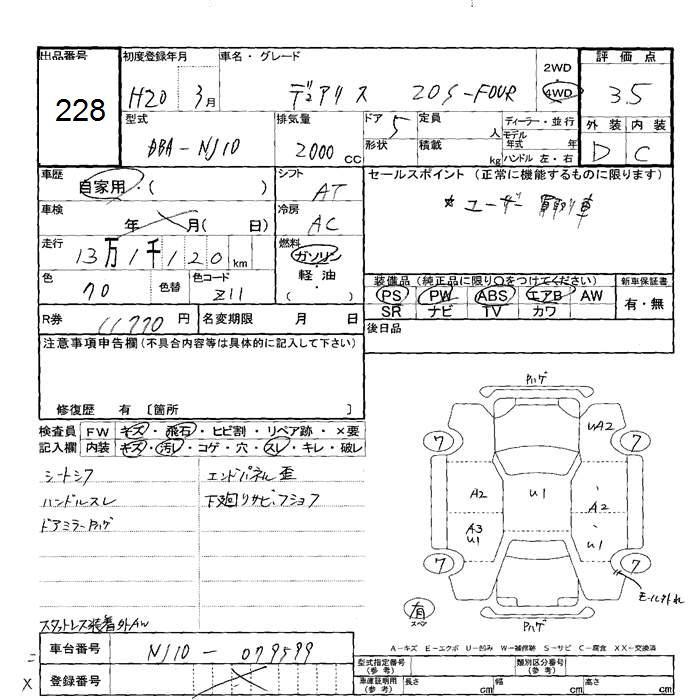 出品番号 初度登録年月 車名・グレード 2WD 評価点
228 H20 3月 デュアリス 20S-FOUR 4WD 3.5
型式 排気量 ドア 5 定員 人 ディーラー・並行 外装 内装
DBA-NJ10 2000cc 形状 積載 kg モデル年式 年 D C
ハンドル 左・右
車歴 自家用・( ) シフト AT セールスポイント (正常に機能するものに限ります)
車検 年 月( 日) 冷房 AC * ユーザー買取り車
走行 13万1千120km 燃料 ガソリン
軽・油
( )
色 70 色替 色コード Z11 装備品 (純正品に限り○をつけてください) 新車保証書
PS PW ABS エアB AW 有・無
SR ナビ TV カワ
R券 11770円 名変期限 月 日 後日品
注意事項申告欄 (不具合内容等は具体的に記入して下さい)
修復歴 有 [箇所 ]
検査員 FW キズ・飛石・ヒビ割・リペア跡・×要
記入欄 内装 キズ・汚レ・コゲ・穴・スレ・キレ・破レ
シートシワ エンドパネル歪
ハンドルスレ 下廻りサビ,フショク
ドアミラーハゲ
スタットレス装着外AW
ハゲ
UA2
7 7
A2 U1 A2
A3 U1
U1
7 7
モールハズれ
有
スペア
ハゲ
A-キズ E-エクボ U-凹み W-補修跡 S-サビ C-腐食 XX-交換済
車台番号 NJ10-079599
登録番号
型式指定番号(参考) 類別区分番号(参考)
車庫証明用(参考) 長さ cm 幅 cm 高さ cm